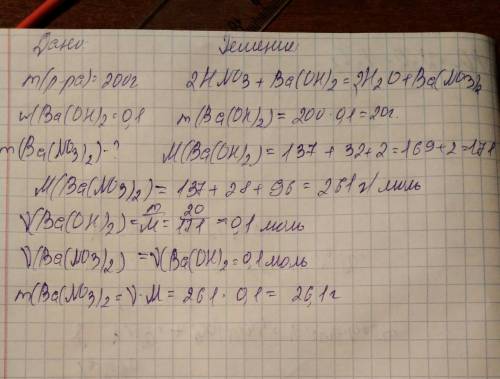 Дано: Решение:
m(р-ра)=200г 2HNO3 + Ba(OH)2 = 2H2O + Ba(NO3)2
w(Ba(OH)2=0,1 m(Ba(OH)2)= 200·0,1=20г.
m(Ba(NO3)2)-? M(Ba(OH)2)= 137 + 32+2=169+2=171
M(Ba(NO3)2)= 137+28+96=261 г/моль
V(Ba(OH)2)= m/M = 20/171 = 0,1 моль
V(Ba(NO3)2) = V(Ba(OH)2=0,1 моль
m(Ba(NO3)2=V·M = 261·0,1= 26,1г